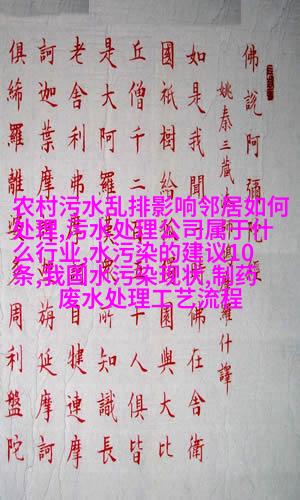 佛說阿彌
姚秦三藏羅什譯
如是我聞佛在舍衛
國祇樹給園與大比
丘僧千二十人俱皆
是大阿羅漢知識長
老舍利弗目犍連摩
訶迦葉摩旃延摩訶
俱絺羅離周利盤陀
农村污水乱排影响邻居如何
处理,污水处理公司属于什
么行业,水污染的建议10
条,我国水污染现状,制药
废水处理工艺流程